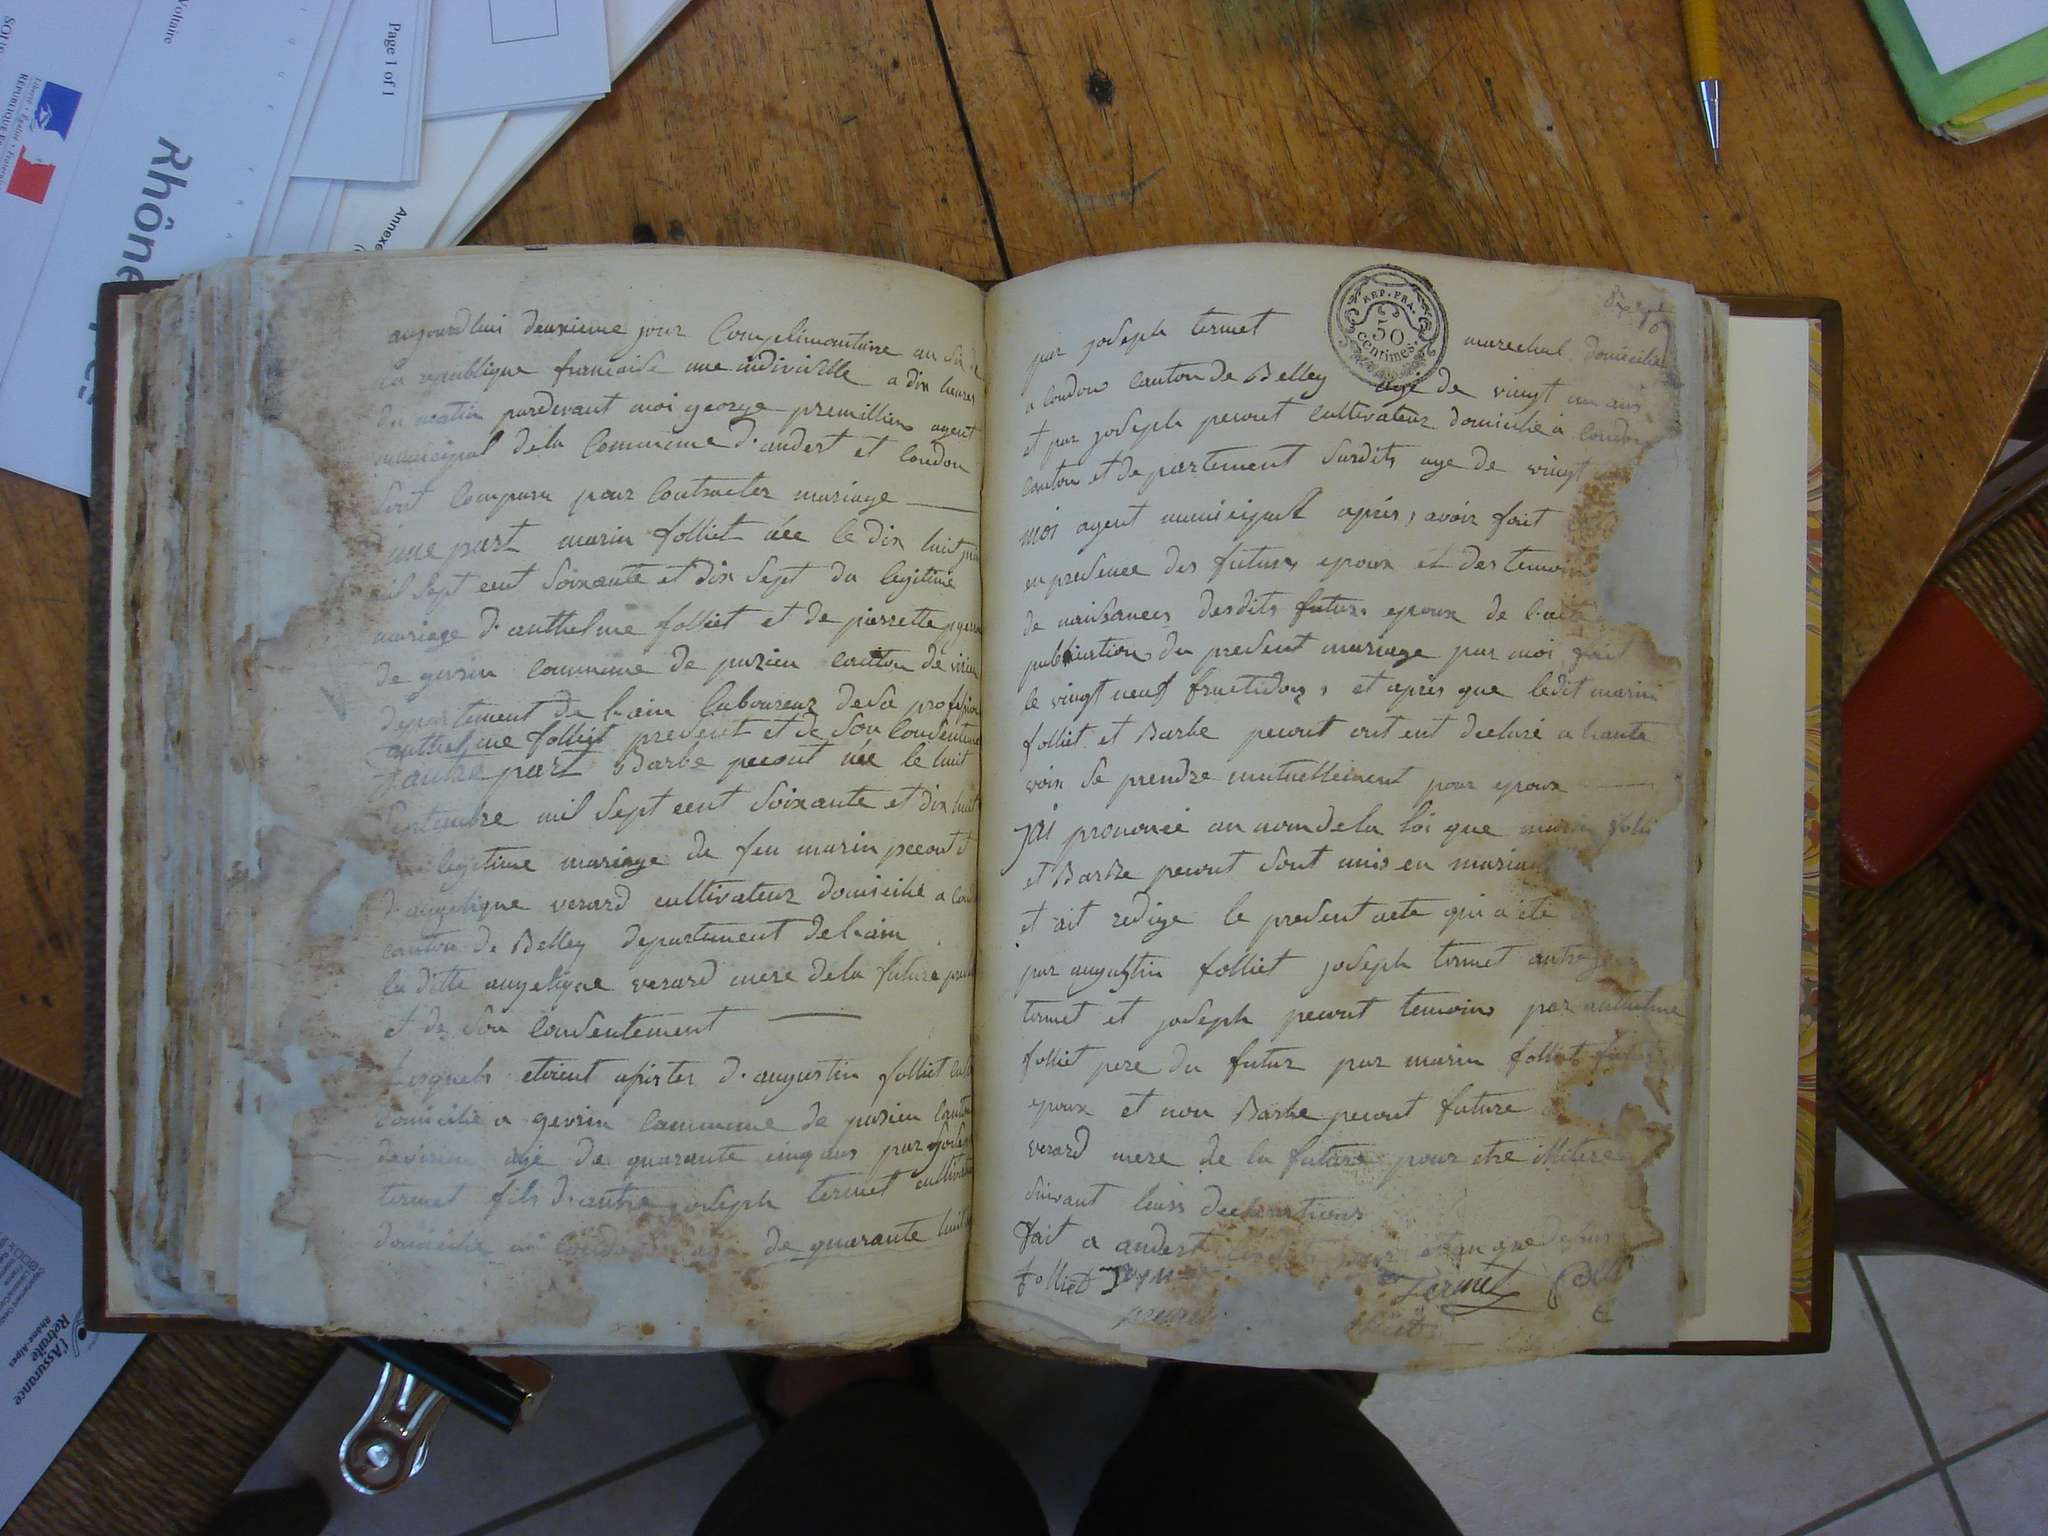 Voltaire
Page 1 of 1
Liberté • Égalité • Fraternité
Rhône
Annexe
aujourdhui deuxieme jour Complimantaire an Six de
la republique francaise une indivisible a dix heures
du matin pardevant moi george premillieu agent
municipal dela Commune d'andert et Condon
Sont Comparu pour Contracter mariage
d'une part marin folliet née le dix huit juin
mil Sept cent Soixante et dix Sept du legitime
mariage d'anthelme folliet et de pierrette
de gevrin commune de puzieu Canton de virieu
departement de l'ain laboureur de Sa profession
anthelme folliet present et de Son Consentement
d'autre part Barbe pecout née le huit
Septembre mil Sept cent Soixante et dix huit
legitime mariage de feu marin pecout et
d'angelique verard cultivateur domicilié a
canton de Belley departement de l'ain
la ditte angelique verard mere dela future
et de Son Consentement
Lesquels etoient assistes d'augustin folliet
domicilié a gevrin Commune de puzieu Canton
de virieu agé de quarante cinq ans par Joseph
termet fils d'autre joseph termet cultivateur
domicilié a de quarante huit
par joseph termet marechal domicilié
REP. FRA.
50
centimes.
a Condon Canton de Belley agé de vingt un ans
et par joseph pecout cultivateur domicilié a Condon
Canton et departement Susdits age de vingt
moi agent municipal après avoir fait
en presence des futurs epoux et des temoins
de naissances desdits futurs epoux de l'acte
publication du present mariage par moi fait
le vingt neuf fructidor, et après que ledit marin
folliet et Barbe pecout ont eut declaré a haute
voix Se prendre mutuellement pour epoux
J'ai prononcé au nom de la loi que marin
et Barbe pecout Sont unis en mariage
et ait redigé le present acte qui a été
par augustin folliet joseph termet autre
termet et joseph pecout temoins par anthelme
folliet pere du futur par marin folliet futur
epoux et non Barbe pecout future
verard mere de la future pour etre illitere
Suivant leurs declarations
fait a andert et an que dessus
folliet
Termet
l'Assurance
Retraite
Rhône-Alpes